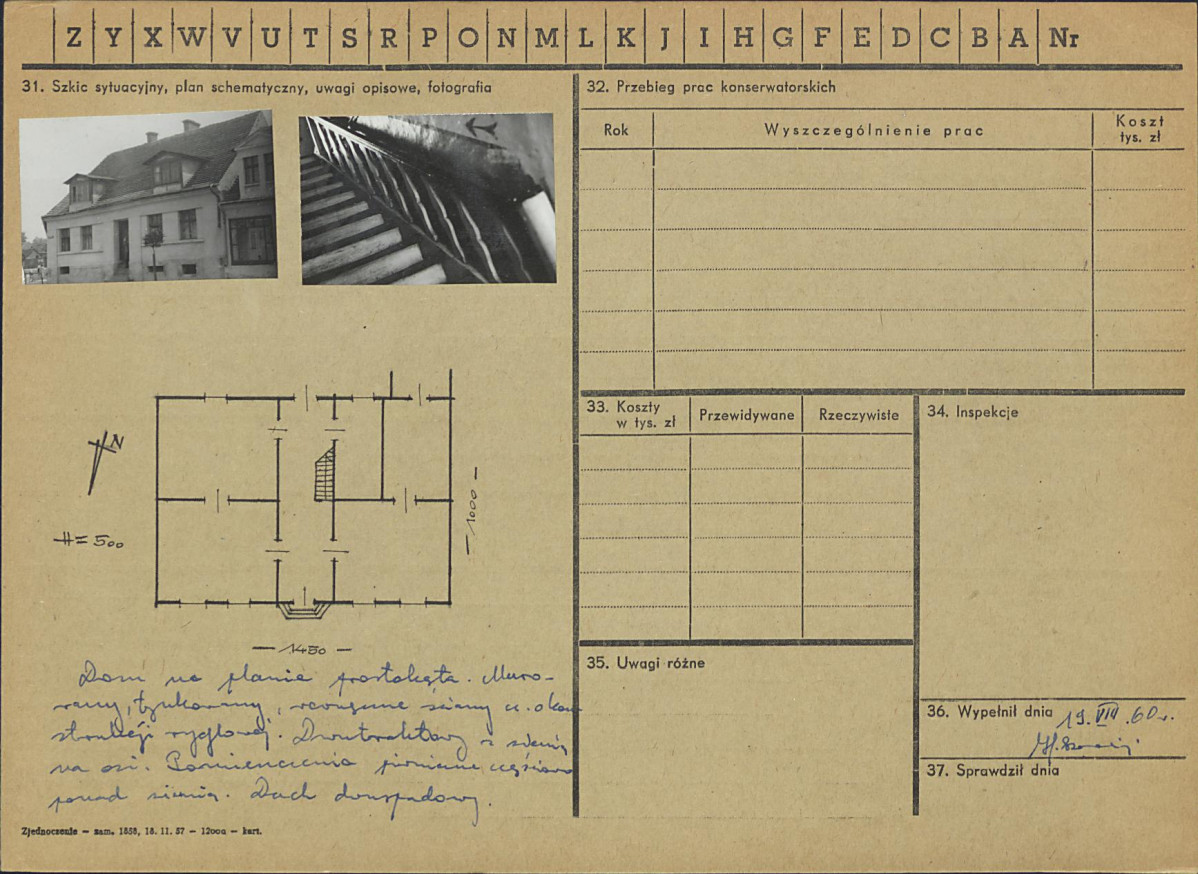 Z Y X W V U T S R P O N M L K J I H G F E D C B A Nr
31. Szkic sytuacyjny, plan schematyczny, uwagi opisowe, fotografia
N
H = 500
1000
1450
Dom na planie prostokąta. Muro-
wany, tynkowany, wewnętrzne ściany
strukcji ryglowej. Dwutraktowy z sienią
na osi. Pomieszczenia
ponad sienią. Dach dwuspadowy.
Zjednoczenie – zam. 1858, 18. 11. 57 – 12000 – kart.
32. Przebieg prac konserwatorskich
Rok Wyszczególnienie prac Koszt
tys. zł
33. Koszty
w tys. zł
Przewidywane Rzeczywiste
34. Inspekcje
35. Uwagi różne
36. Wypełnił dnia 19. VIII. 60 r.
37. Sprawdził dnia